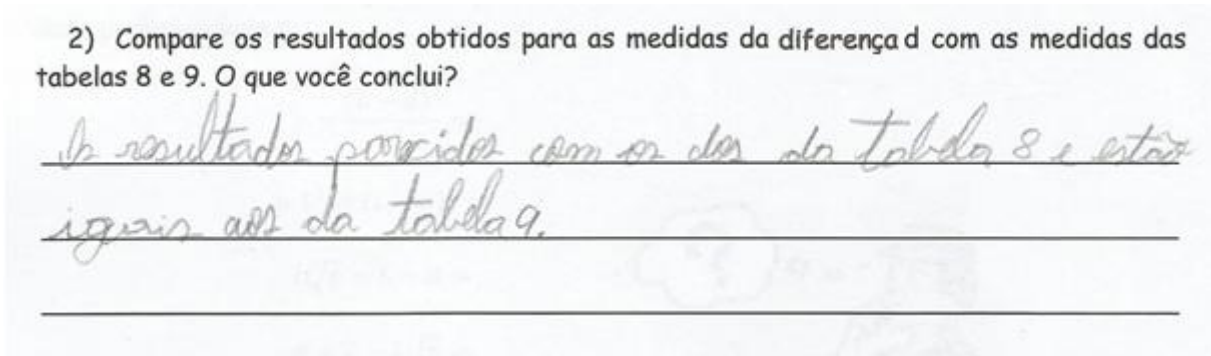 2) Compare os resultados obtidos para as medidas da diferença d com as medidas das
tabelas 8 e 9. O que você conclui?
Os resultados parecidos com os dos da tabela 8 e estão
iguais aos da tabela 9.